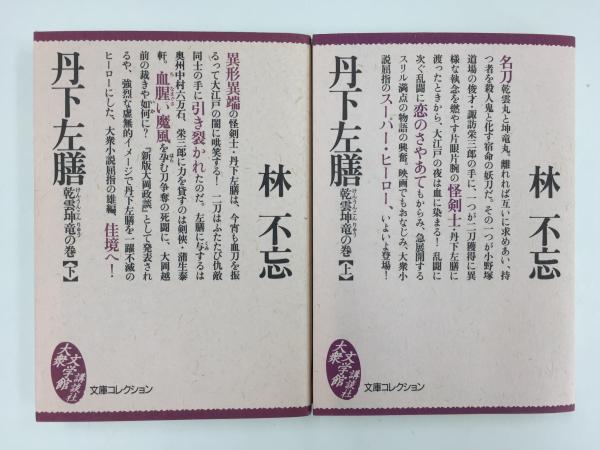 林 不忘
丹下左膳
乾雲坤竜の巻【上】
けんうんこんりゅう
名刀乾雲丸と坤竜丸。離れれば互いに求めあい、持
つ者を殺人鬼と化す宿命の妖刀だ。その一つが小野塚
道場の俊才・諏訪栄三郎の手に、一つが二刀獲得に異
様な執念を燃やす片眼片腕の怪剣士・丹下左膳に
渡ったときから、大江戸の夜は血に染まる!乱闘に
次ぐ乱闘に恋のさやあてもからみ、急展開する
スリル満点の物語の興奮。映画でもおなじみ、大衆小
説屈指のスーパー・ヒーロー、いよいよ登場!
大衆文学館
講談社
文庫コレクション
林 不忘
丹下左膳
乾雲坤竜の巻【下】
けんうんこんりゅう
異形異端の怪剣士・丹下左膳は、今宵も血刀を振
るって大江戸の闇に哄笑する!二刀はふたたび仇敵
同士の手に引き裂かれたのだ。左膳に与するは
奥州中村六万石、栄三郎に力を貸すのは剣侠・蒲生泰
軒。血腥い魔風を孕む刀争奪の死闘に、大岡越
前の裁きや如何に?『新版大岡政談』として発表され
るや、強烈な虚無的イメージで丹下左膳を一躍不滅の
ヒーローにした、大衆小説屈指の雄編、佳境へ!
大衆文学館
講談社
文庫コレクション